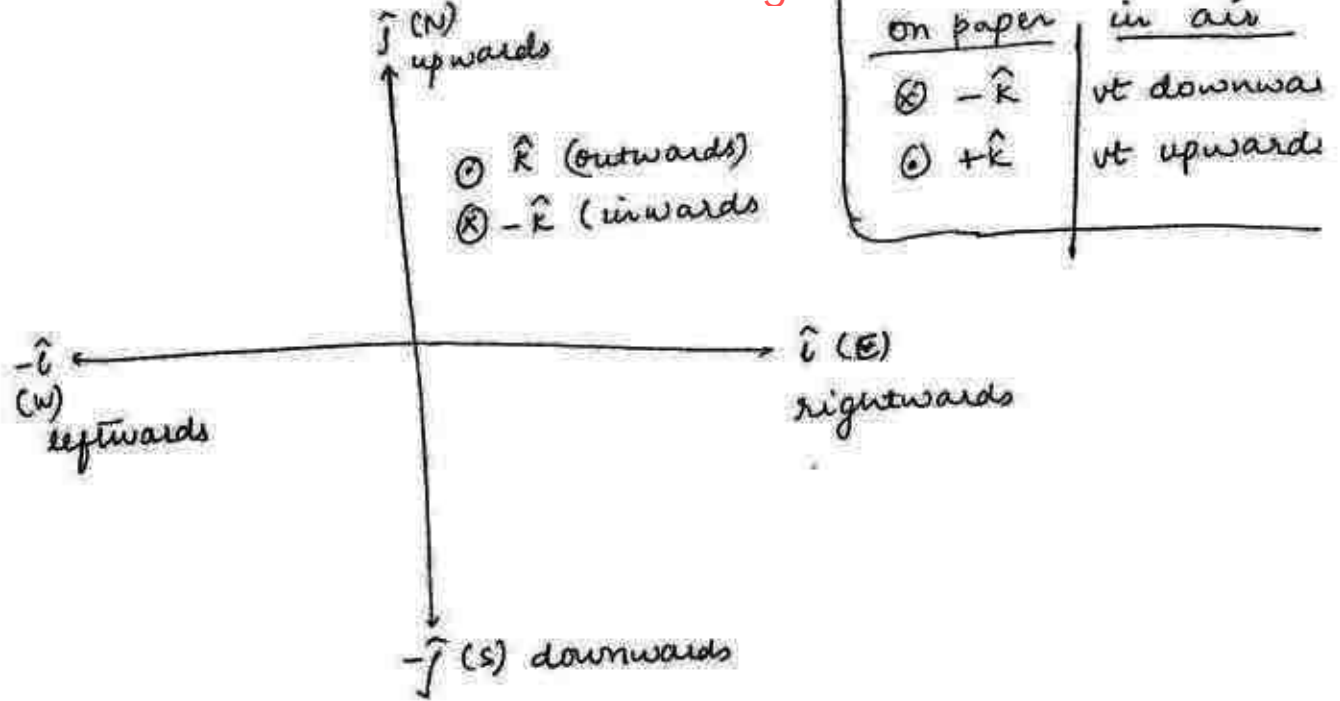 ĵ (N)
upwards
⊙ k̂ (outwards)
⊗ -k̂ (inwards
on paper | in air
⊗ -k̂ | vt downwar
⊙ +k̂ | vt upwards
-î
(W)
leftwards
î (E)
rightwards
-ĵ (S) downwards